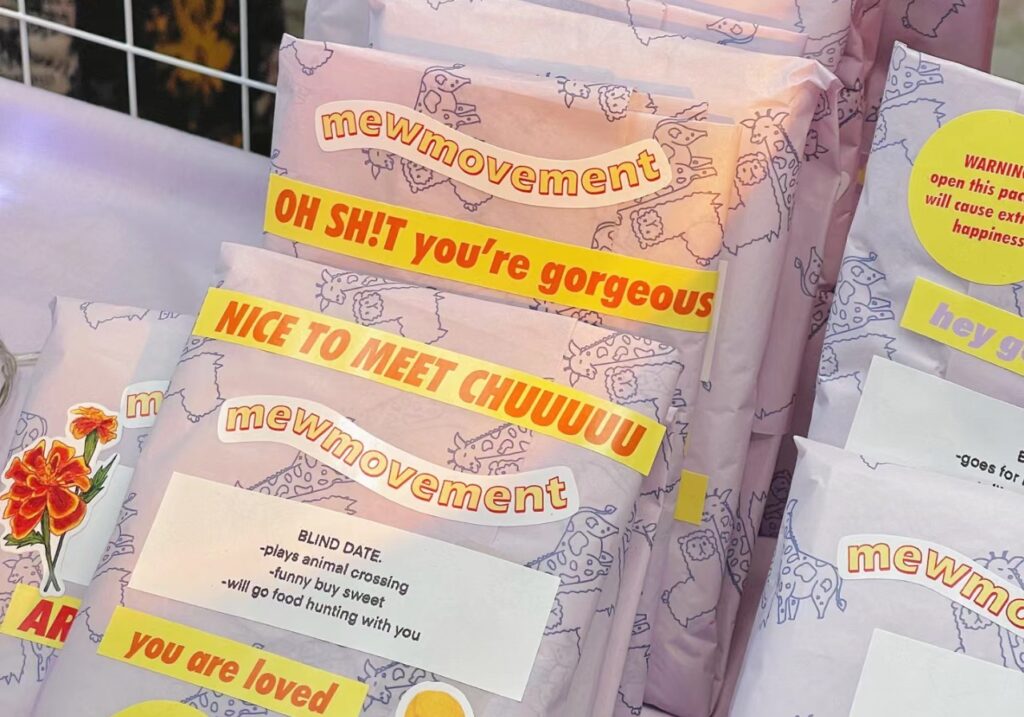 mewmovement
OH SH!T you're gorgeous
NICE TO MEET CHUUUUU
mewmovement
BLIND DATE.
-plays animal crossing
-funny buy sweet
-will go food hunting with you
you are loved
m
AR
WARNING
open this pac
will cause ext
happiness
hey g
-goes for
mewmo